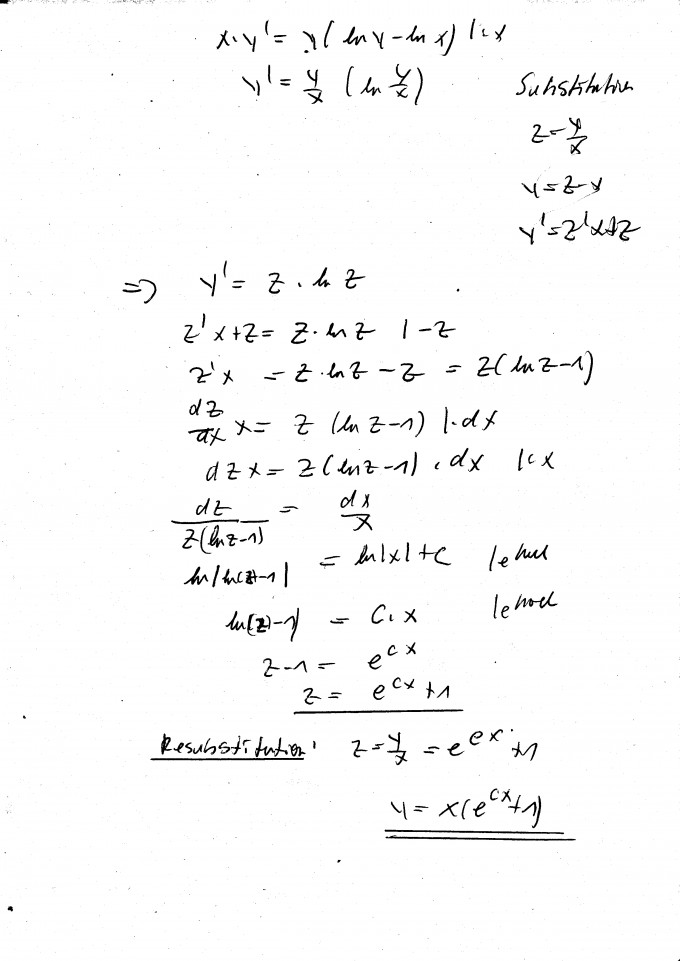 x·y' = y(ln y - ln x) |:x
y' = y/x (ln y/x)
Substitution
z = y/x
y = z·x
y' = z'x+z
=> y' = z · ln z
z'x+z = z·ln z |-z
z'x = z·ln z - z = z(ln z-1)
dz/dx x = z (ln z-1) |·dx
dz x = z(ln z-1) · dx |:x
dz/z(ln z-1) = dx/x
ln|ln(z)-1| = ln|x|+C |e hoch
ln(z)-1 = C·x |e hoch
z-1 = e^cx
z = e^cx +1
Resubstitution: z = y/x = e^cx +1
y = x(e^cx+1)